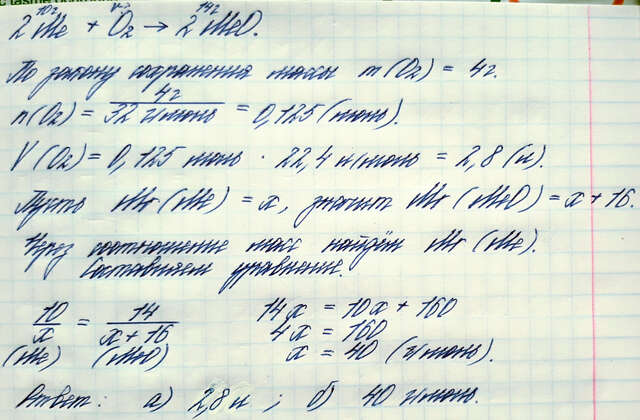 10г V-? 14г
2 Me + O₂ → 2 MeO.
По закону сохранения массы m(O₂) = 4г.
n(O₂) = 4г / 32 г/моль = 0,125 (моль).
V(O₂) = 0,125 моль · 22,4 л/моль = 2,8 (л).
Пусть Mr(Me) = x, значит Mr(MeO) = x + 16.
Через соотношение масс найдём Mr(Me).
Составляем уравнение.
10/x = 14/(x+16) 14x = 10x + 160
4x = 160
(Me) (MeO) x = 40 (г/моль).
Ответ: а) 2,8 л ; б) 40 г/моль.